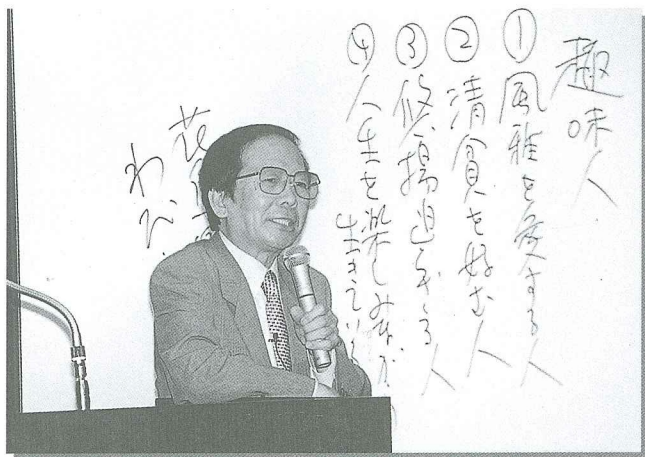 趣味人
①風雅を愛する人
②清貧を好む人
③悠揚迫らざる人
④人生を楽しみながら生きている
わび